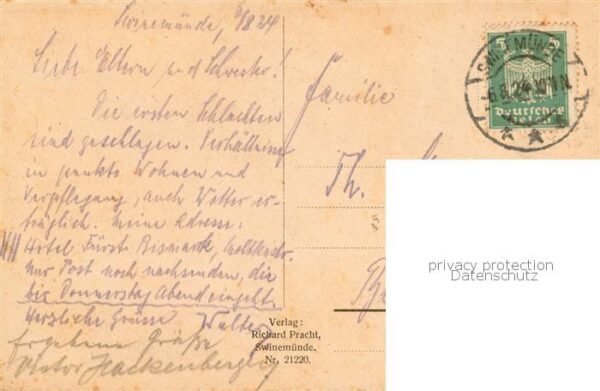 Swinemünde, 6/8 24
Liebe Eltern und Schwester!
Die ersten Schlachten
sind geschlagen. Verhältnisse
in punkto Wohnen und
Verpflegung, auch Wetter er-
träglich. Meine Adresse:
Hotel Fürst Bismarck,
Nur Post noch nachsenden, die
bis Donnerstag Abend eingeht.
Herzliche Grüsse Walter
Ergebene Grüße
Viktor Hackenberger
Familie
Th.
SWINEMÜNDE
Deutsches Reich
Verlag:
Richard Pracht,
Swinemünde.
Nr. 21220.
privacy protection
Datenschutz